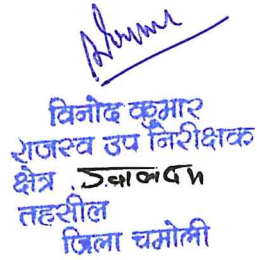 विनोद कुमार
राजस्व उप निरीक्षक
क्षेत्र
तहसील
जिला चमोली